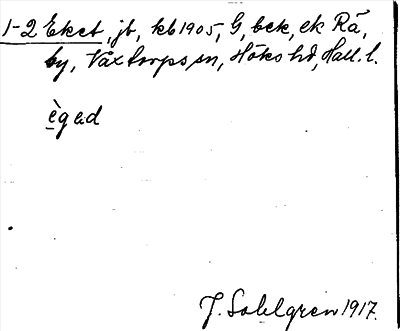 1-2 Eket, jb, kb 1905, G, bek, ek Rå,
by, Våxtorps sn, Höks hd, Hall. l.
ègəd
J. Sahlgren 1917.